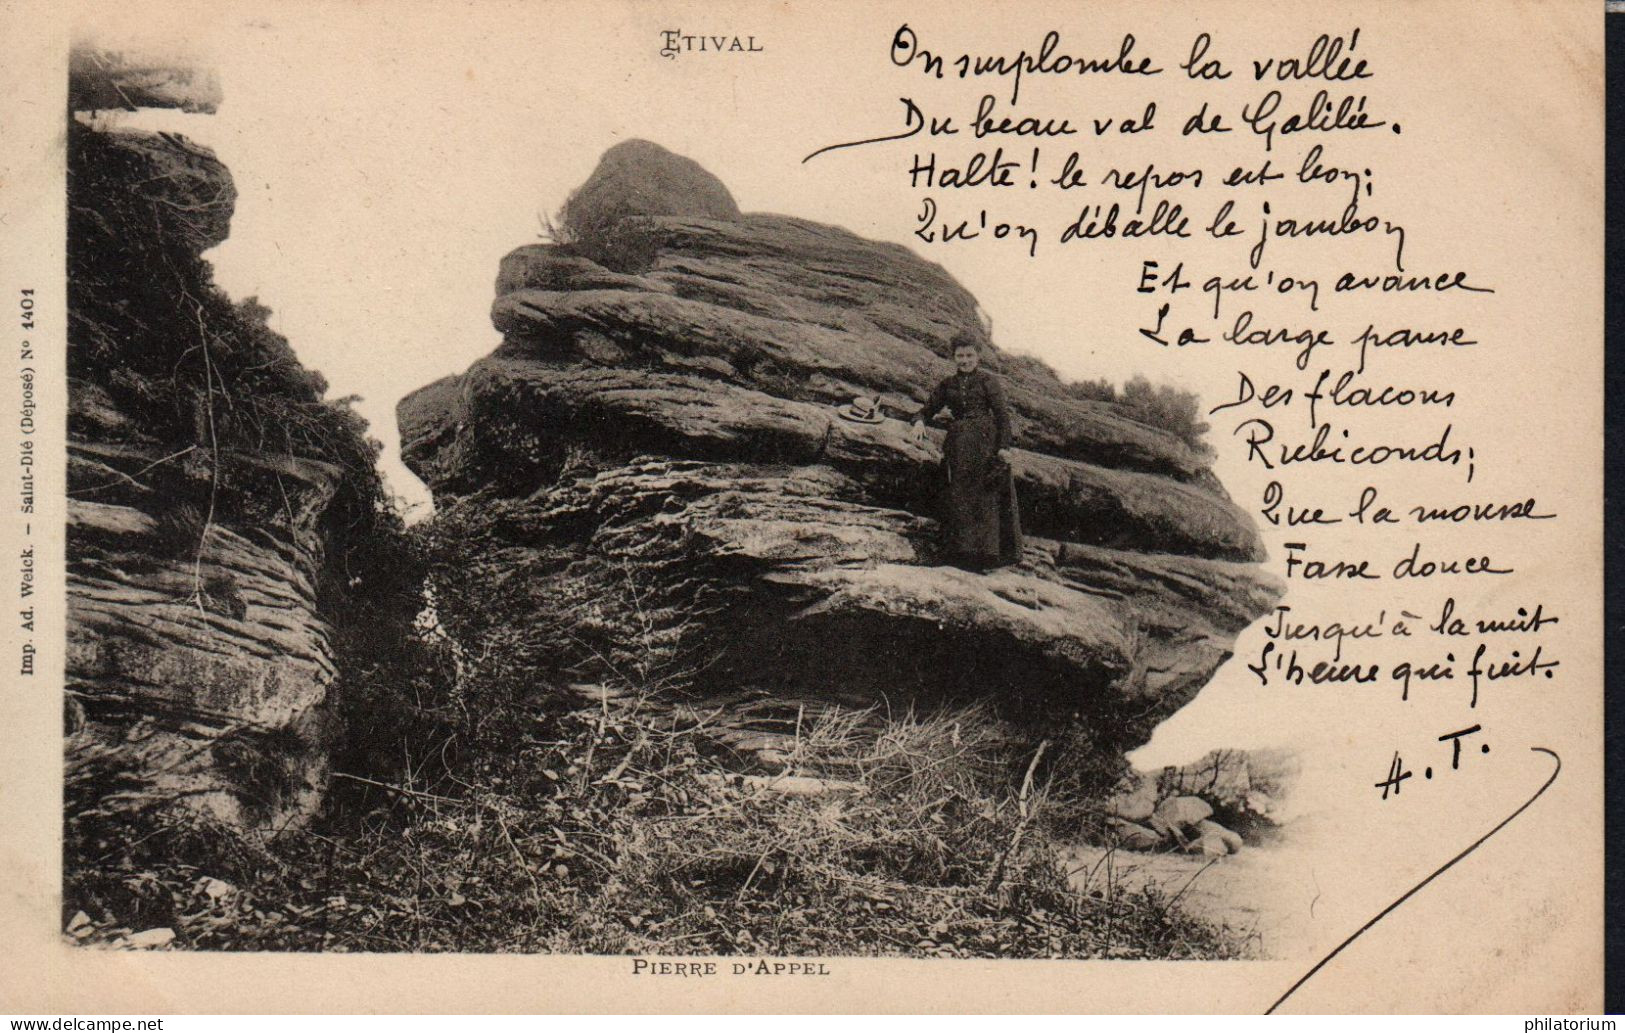 ETIVAL
On surplombe la vallée
Du beau val de Galilée.
Halte! le repos est bon;
Qu'on déballe le jambon
Et qu'on avance
La large panse
Des flacons
Rubiconds;
Que la mousse
Fasse douce
Jusqu'à la nuit
L'heure qui fuit.
A. T.
Imp. Ad. Weick. – Saint-Dié (Déposé) No 1401
PIERRE D'APPEL
www.delcampe.net
philatorium